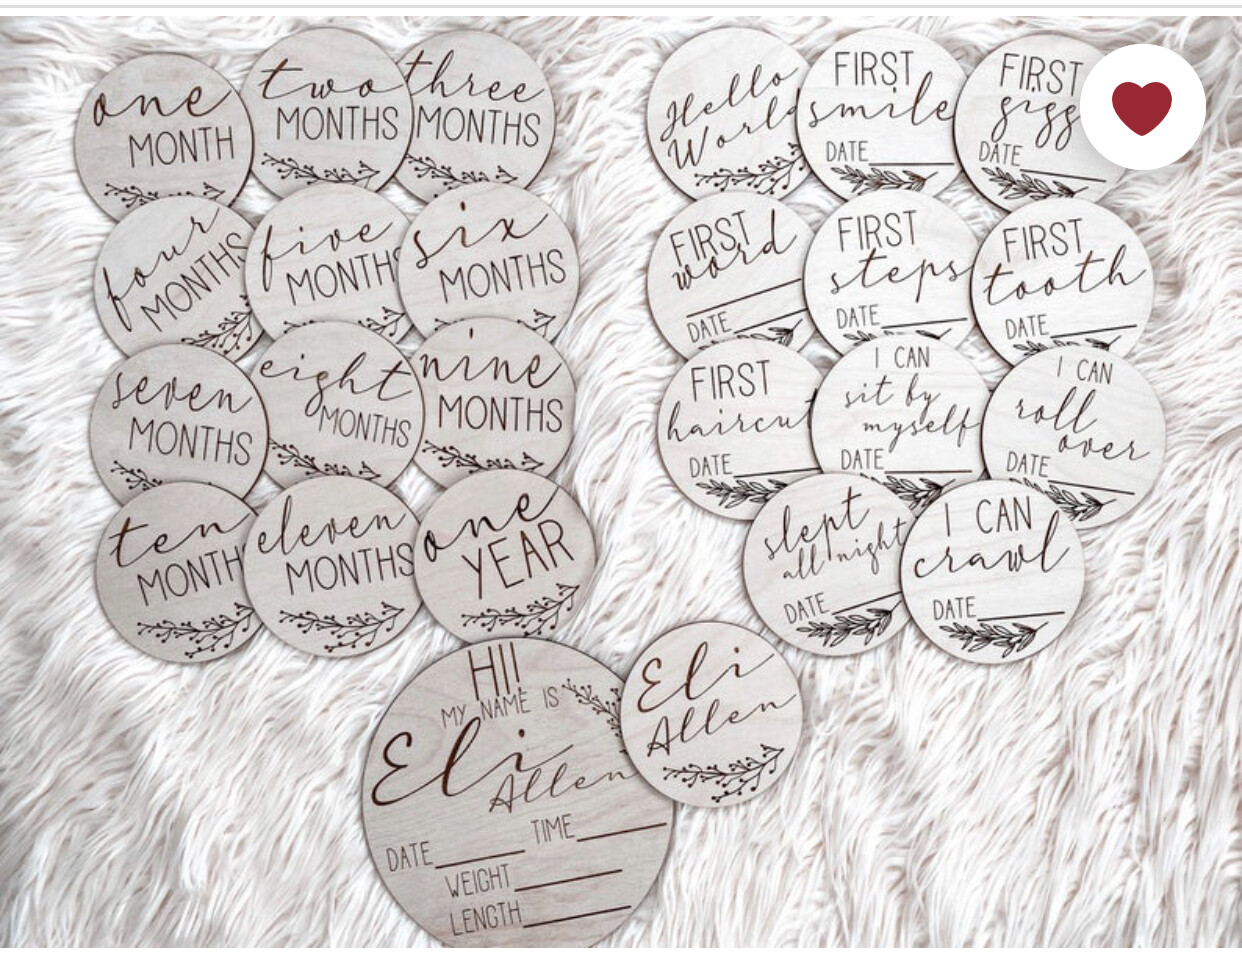 one
MONTH
two
MONTHS
three
MONTHS
four
MONTHS
five
MONTHS
six
MONTHS
seven
MONTHS
eight
MONTHS
nine
MONTHS
ten
MONTH
eleven
MONTHS
one
YEAR
Hello
World
FIRST
smile
DATE
FIRST
gigg
DATE
FIRST
word
DATE
FIRST
steps
DATE
FIRST
tooth
DATE
FIRST
haircut
DATE
I CAN
sit by
myself
DATE
I CAN
roll
over
DATE
slept
all night
DATE
I CAN
crawl
DATE
HI!
MY NAME IS
Eli
Allen
DATE TIME
WEIGHT
LENGTH
Eli
Allen